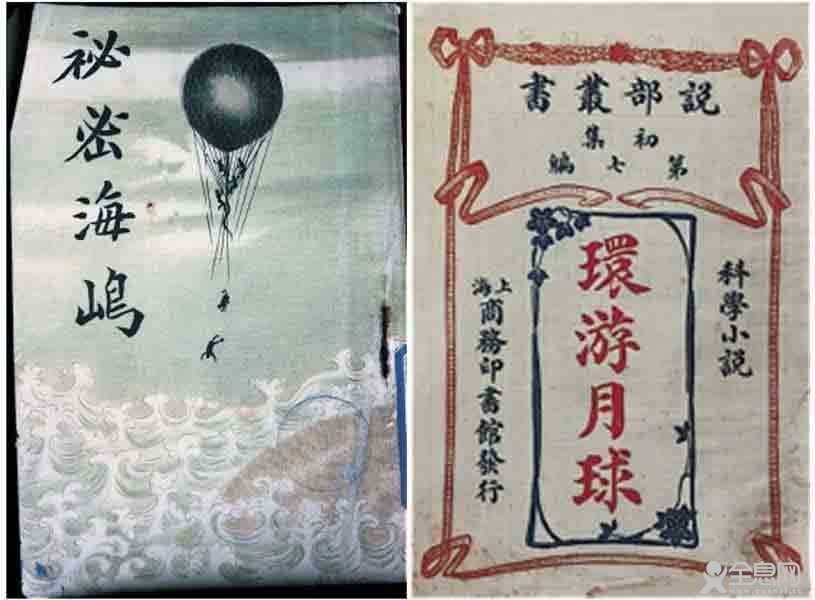 祕密海嶋
説部叢書
初集
第七編
科學小説
環游月球
上海
商務印書館發行
全息网
www.quanxi.cc